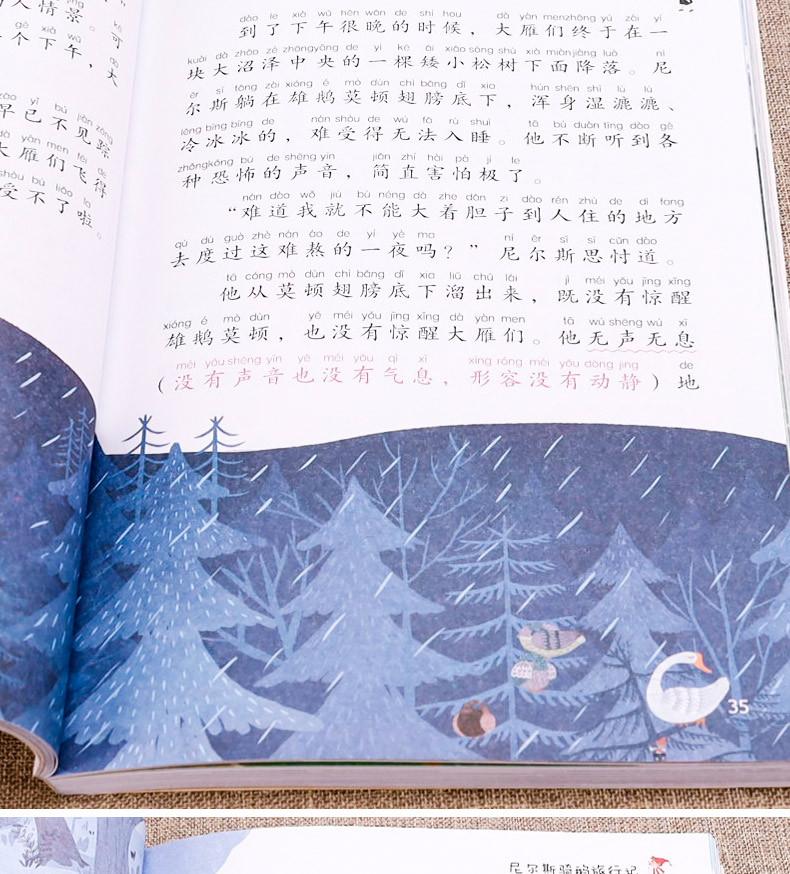 人情景。可
个下午,大
早已不见踪
大雁们飞得
受不了啦。
dào le xià wǔ hěn wǎn de shí hou dà yàn menzhōng yú zài yí
到了下午很晚的时候,大雁们终于在一
kuài dà zhǎo zé zhōngyāng de yì kē ǎi xiǎo sōng shù xià miànjiàng luò ní
块大沼泽中央的一棵矮小松树下面降落。尼
ěr sī tǎng zài xióng é mò dùn chì bǎng dǐ xia hún shēn shī lù lù
尔斯躺在雄鹅莫顿翅膀底下,浑身湿漉漉、
lěng bīng bīng de nán shòu de wú fǎ rù shuì tā bú duàn tīng dào gè
冷冰冰的,难受得无法入睡。他不断听到各
zhǒngkǒng bù de shēng yīn jiǎn zhí hài pà jí le
种恐怖的声音,简直害怕极了。
nán dào wǒ jiù bù néng dà zhe dǎn zi dào rén zhù de dì fang
“难道我就不能大着胆子到人住的地方
qù dù guò zhè nán áo de yí yè ma ní ěr sī sī cǔn dào
去度过这难熬的一夜吗?”尼尔斯思忖道。
tā cóng mò dùn chì bǎng dǐ xia liū chū lái jì méi yǒu jīng xǐng
他从莫顿翅膀底下溜出来,既没有惊醒
xióng é mò dùn yě méi yǒu jīng xǐng dà yàn men tā wú shēng wú xī
雄鹅莫顿,也没有惊醒大雁们。他无声无息
méi yǒu shēng yīn yě méi yǒu qì xī xíng róng méi yǒu dòng jìng de
(没有声音也没有气息,形容没有动静)地
35
尼尔斯骑鹅旅行记